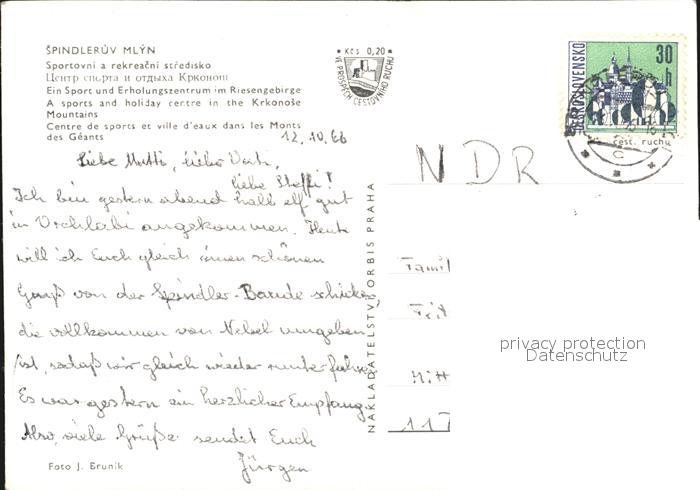 ŠPINDLERŮV MLÝN
Sportovní a rekreační středisko
Центр спорта и отдыха Крконош
Ein Sport und Erholungszentrum im Riesengebirge
A sports and holiday centre in the Krkonoše
Mountains
Centre de sports et ville d'eaux dans les Monts
des Géants
12.10.66
Liebe Mutti, lieber Vati,
liebe Steffi!
Ich bin gestern abend halb elf gut
in Vrchlabi angekommen. Heute
will ich Euch gleich einen schönen
Gruß von der Spindler-Baude schicken,
die vollkommen von Nebel umgeben
ist, sodaß wir gleich wieder runterfuhren.
Es war gestern ein herzlicher Empfang.
Also, viele Grüße sendet Euch
Jürgen
Foto J. Brunik
NAKLADATELSTVÍ ORBIS PRAHA
Kčs 0,20
VE PROSPĚCH CESTOVNÍHO RUCHU
ČESKOSLOVENSKO
30
h
cest. ruchu
NDR
Famil
Frit
Mitt
117
privacy protection
Datenschutz